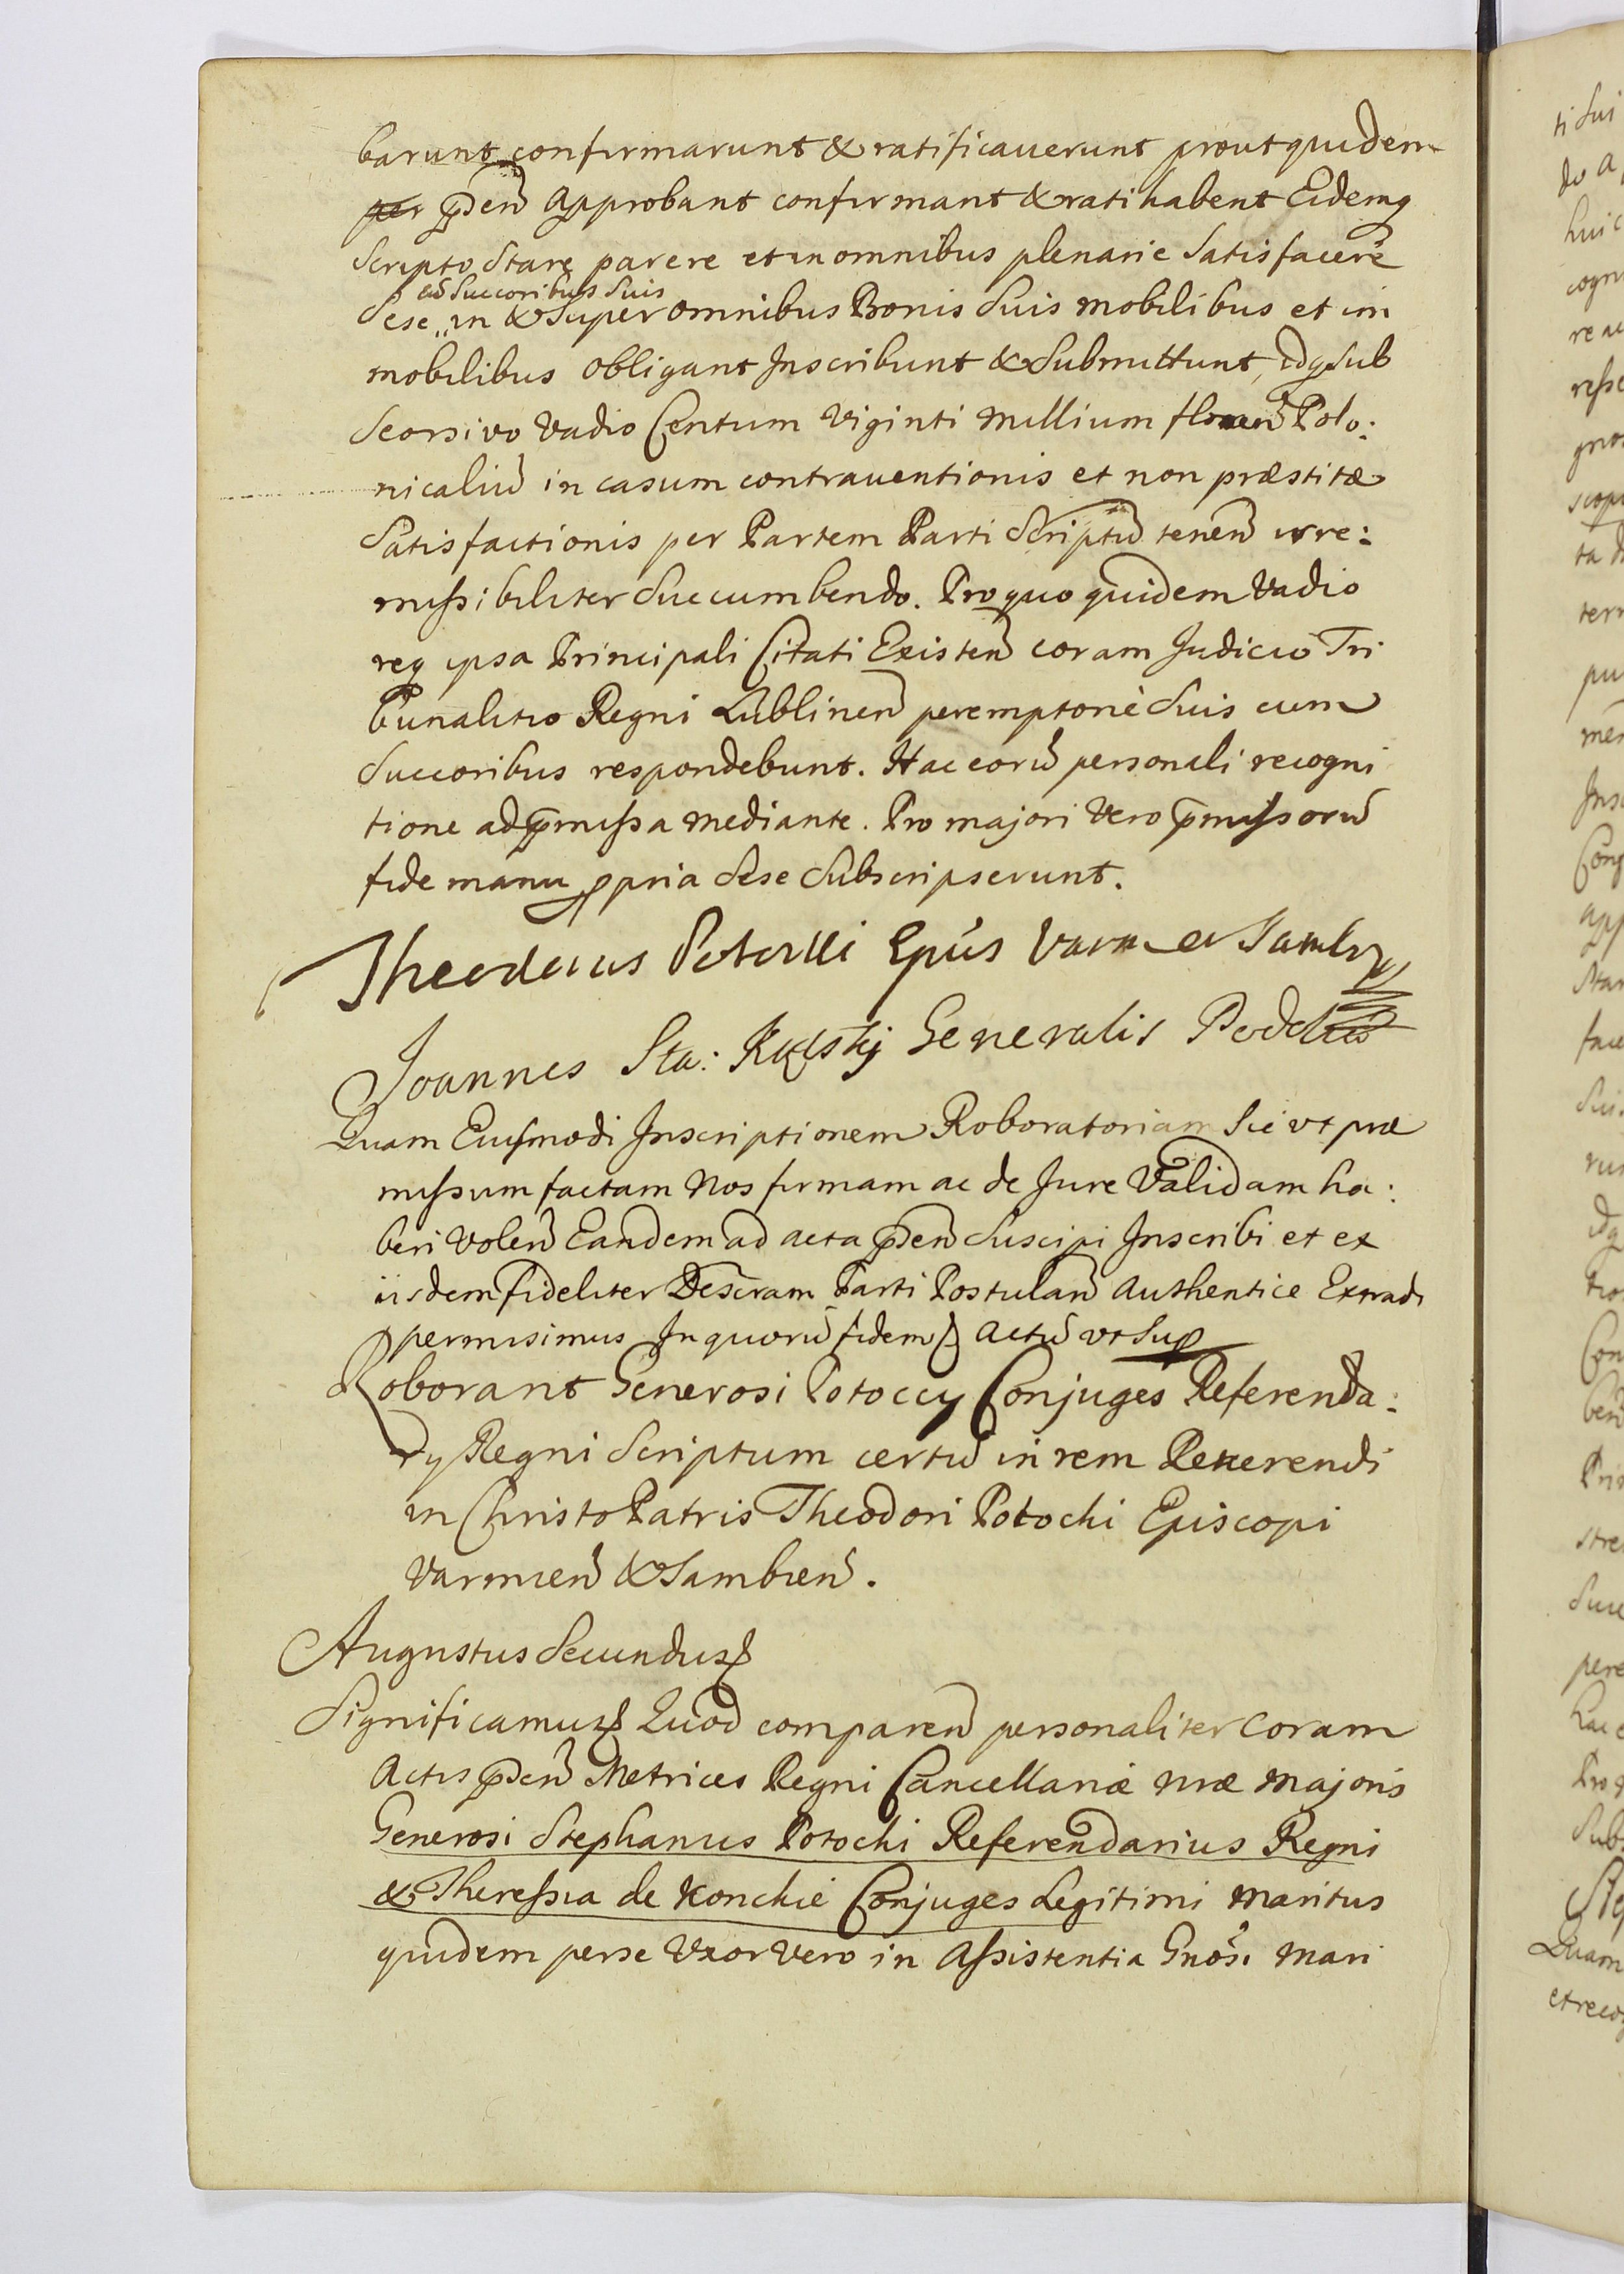 barunt confirmarunt & ratificaverunt prout quidem
per p̃den̄ approbant confirmant & ratihabent Eidemq
Scripto Stare parere et in omnibus plenarie Satisfacere
eū Succoribus Suis
Sese „ in & Super omnibus Bonis Suis mobilibus et im
mobilibus obligant Inscribunt & Submittunt, idq Sub
Seorsivo Vadio Centum Viginti Millium floren̄ Polo:
nicaliū in casum contraventionis et non præstitæ
Satisfactionis per Partem Parti Scriptū tenen̄ irre:
missibiliter Succumbendo. Pro quo quidem Vadio
req ipsa Principali Citati Existen̄ coram Judicio Tri
bunalitio Regni Lublinen̄ peremptorie Suis cum
Succoribus respondebunt. Hac eorū personali recogni
tione ad p̄missa mediante. Pro majori Vero p̄missorū
fide manu ppria Sese Subscripserunt.
Theodorus Potocki Epūs Varm et Samb
Joannes Sta: Kącskj Generalis Podoliæ
Quam Eiusmodi Inscriptionem Roboratoriam Sic vt præ
missum factam Nos firmam ac de Jure Validam ha:
beri Volen̄ Eandem ad acta p̃den̄ Suscipi Inscribi et ex
iisdem fideliter Descram Parti Postulan̄ Authentice Extradi
permisimus In quorū fidem Actū vt Sup
Roborant Generosi Potoccy Conjuges Referenda:
ry Regni Scriptum certū in rem Reverendi
in Christo Patris Theodori Potocki Episcopi
Varmien̄ & Sambien̄.
Augustus Secundus
Significamus Quod comparen̄ personaliter coram
Actis p̃den̄ Metrices Regni Cancellariæ nræ Majoris
Generosi Stephanus Potocki Referendarius Regni
& Theressia de Konckie Conjuges Legitimi Maritus
quidem per se Vxor Vero in Assistentia Gnosi Mari